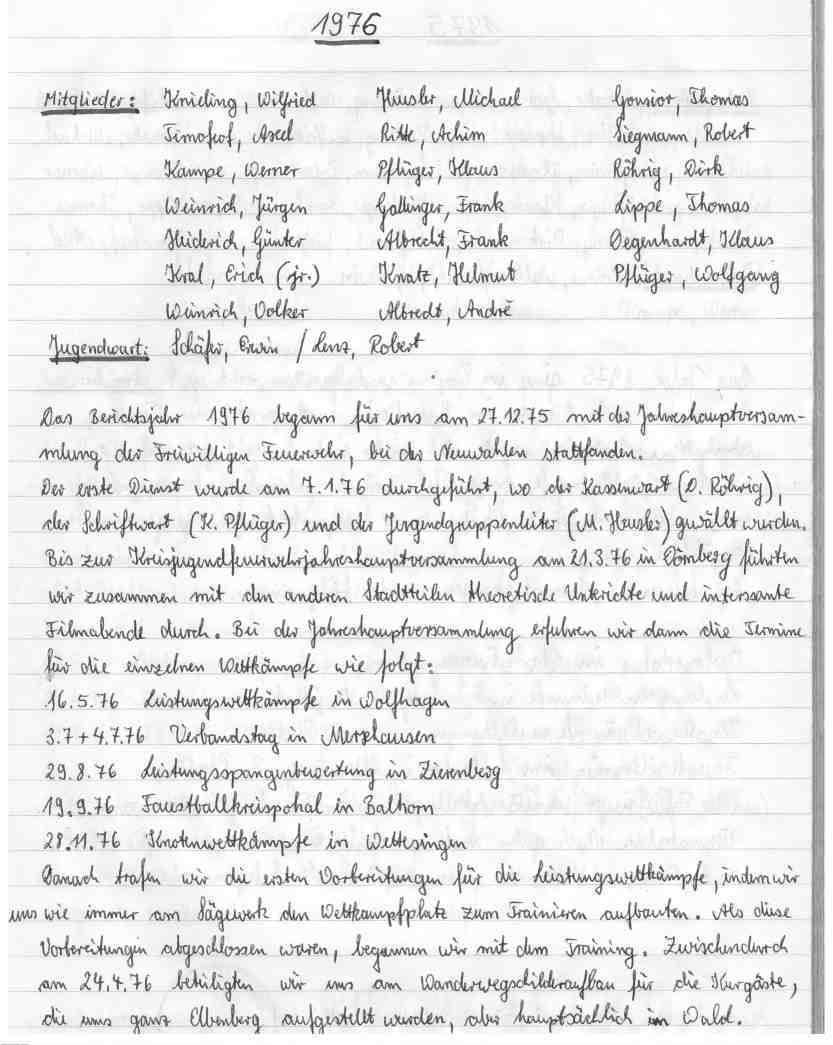 1976
Mitglieder: Knieling, Wilfried Heusler, Michael Gonsior, Thomas
Timofeef, Axel Ritte, Achim Siegmann, Robert
Kampe, Werner Pflüger, Klaus Röhrig, Dirk
Weinrich, Jürgen Gallinger, Frank Lippe, Thomas
Heiderich, Günter Albrecht, Frank Degenhardt, Klaus
Kral, Erich (jr.) Knatz, Helmut Pflüger, Wolfgang
Weinrich, Volker Albrecht, André
Jugendwart: Schäfer, Erwin / Lenz, Robert
Das Berichtsjahr 1976 begann für uns am 27.12.75 mit der Jahreshauptversam-
mlung der Freiwilligen Feuerwehr, bei der Neuwahlen stattfanden.
Der erste Dienst wurde am 7.1.76 durchgeführt, wo der Kassenwart (D. Röhrig),
der Schriftwart (K. Pflüger) und der Jurgendgruppenleiter (M. Heusler) gewällt wurden.
Bis zur Kreisjugendfeuerwehrjahreshauptversammlung am 21.3.76 in Dörnberg führten
wir zusammen mit den anderen Stadtteilen theoretische Unterichte und interssante
Filmabende durch. Bei der Jahreshauptversammlung erfuhren wir dann die Termine
für die einzelnen Wettkämpfe wie folgt:
16.5.76 Leistungswettkämpfe in Wolfhagen
3.7+4.7.76 Verbandstag in Merxhausen
29.8.76 Leistungsspangenbewertung in Zierenberg
19.9.76 Faustballkreispokal in Balhorn
28.11.76 Knotenwettkämpfe in Wettesingen
Danach trafen wir die ersten Vorbereitungen für die Leistungswettkämpfe, indem wir
uns wie immer am Sägewerk den Wettkampfplatz zum Trainieren aufbauten. Als diese
Vorbereitungen abgeschlossen waren, begannen wir mit dem Training. Zwischendurch
am 24.4.76 beteiligten wir uns am Wanderwegschilderaufbau für die Kurgäste,
die ums ganz Elbenberg aufgestellt wurden, aber hauptsächlich im Wald.